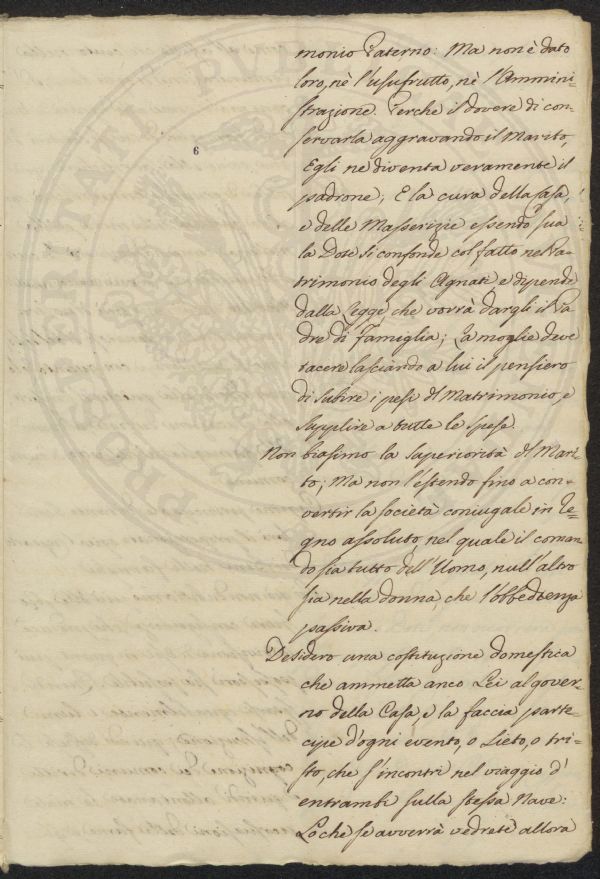 monio Paterno: Ma non è dato
loro, nè l'usufrutto, nè l'Ammini-
strazione. Perche il dovere di con-
servarla aggravando il Marito,
6
Egli ne diventa veramente il
padrone; E la cura della Casa,
e delle Masserizie essendo sua
la Dose si confonde col fatto nel Pa-
trimonio degli Agnati e dipende
dalla Legge, che vorrà dargli il Pa
dre di Famiglia; La moglie deve
tacere lasciando a lui il pensiero
di subire i pesi del Matrimonio, e
supplire a tutte le spese.
Non biasimo la superiorità del Mari-
to; Ma non l'estendo fino a con-
vertir la società coniugale in Re=
gno assoluto, nel quale il coman
do sia tutto dell'Uomo, null'altro
sia nella donna, che l'obbedienza
passiva.
Desidero una costituzione domestica
che ammetta anco Lei al gover-
no della Casa, e la faccia parte-
cipe d'ogni evento, o Lieto, o tri-
sto, che s'incontri nel viaggio d'
entrambi sulla stessa Nave:
Loche se avverrà vedrete allora
PROSPERITATI PUBL